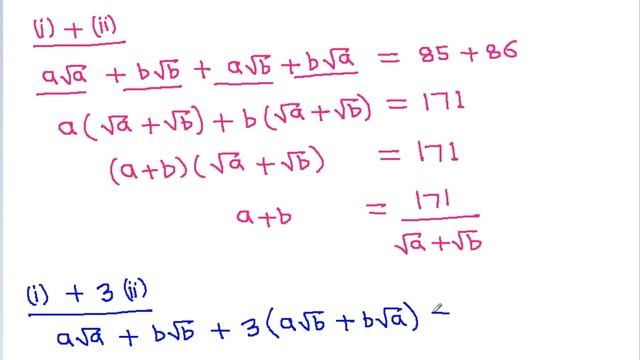 (i) + (ii)
a√a + b√b + a√b + b√a = 85 + 86
a(√a + √b) + b(√a + √b) = 171
(a+b)(√a + √b) = 171
a+b = 171/(√a+√b)
(i) + 3(ii)
a√a + b√b + 3(a√b + b√a)